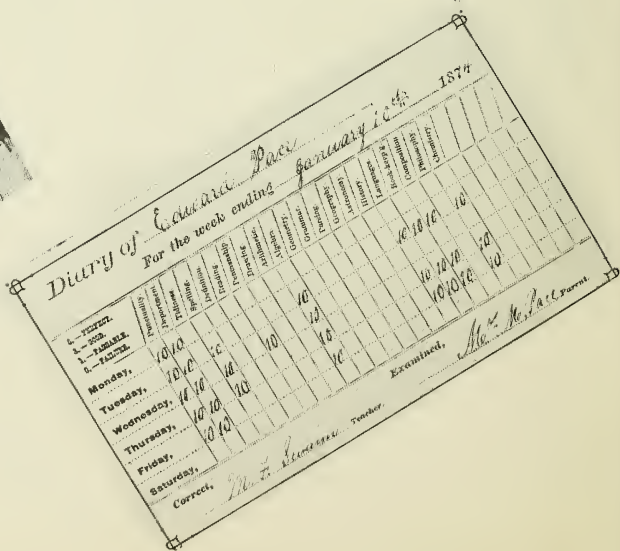 Diary of Edward Pace
For the week ending January 16th 1874
PERFECT.
GOOD.
PASSABLE.
0.—FAILURE.
Punctuality
Deportment
Tidiness
Spelling
Definition
Reading
Penmanship
Drawing
Arithmetic
Algebra
Geometry
Grammar
Parsing
Geography
Astronomy
History
Languages
Book-keeping
Composition
Philosophy
Chemistry
Monday, 10 10 10 10 10 10 10 10
Tuesday, 10 10 10
Wednesday, 10 10 10 10 10 10 10 10
Thursday, 10 10 10 10 10 10 10 10
Friday, 10 10
Saturday,
Correct, M. F. Teacher.
Examined, Mrs. M. Pace Parent.